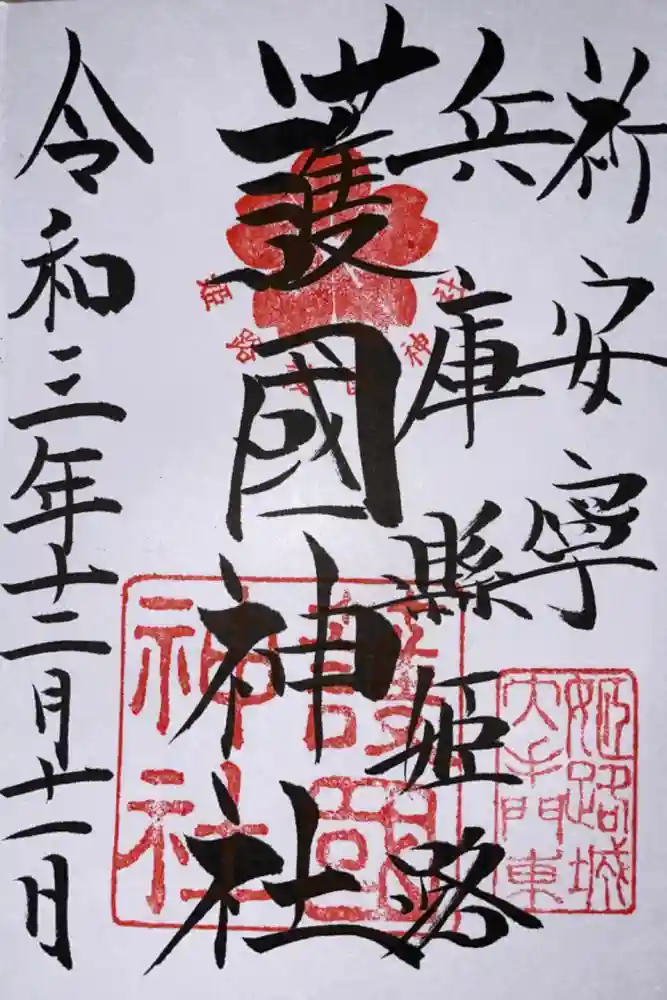 祈安寧
兵庫縣姫路
護國神社
令和三年十二月十一日
姫路城
大手門東
護國
神社
姫路
神社